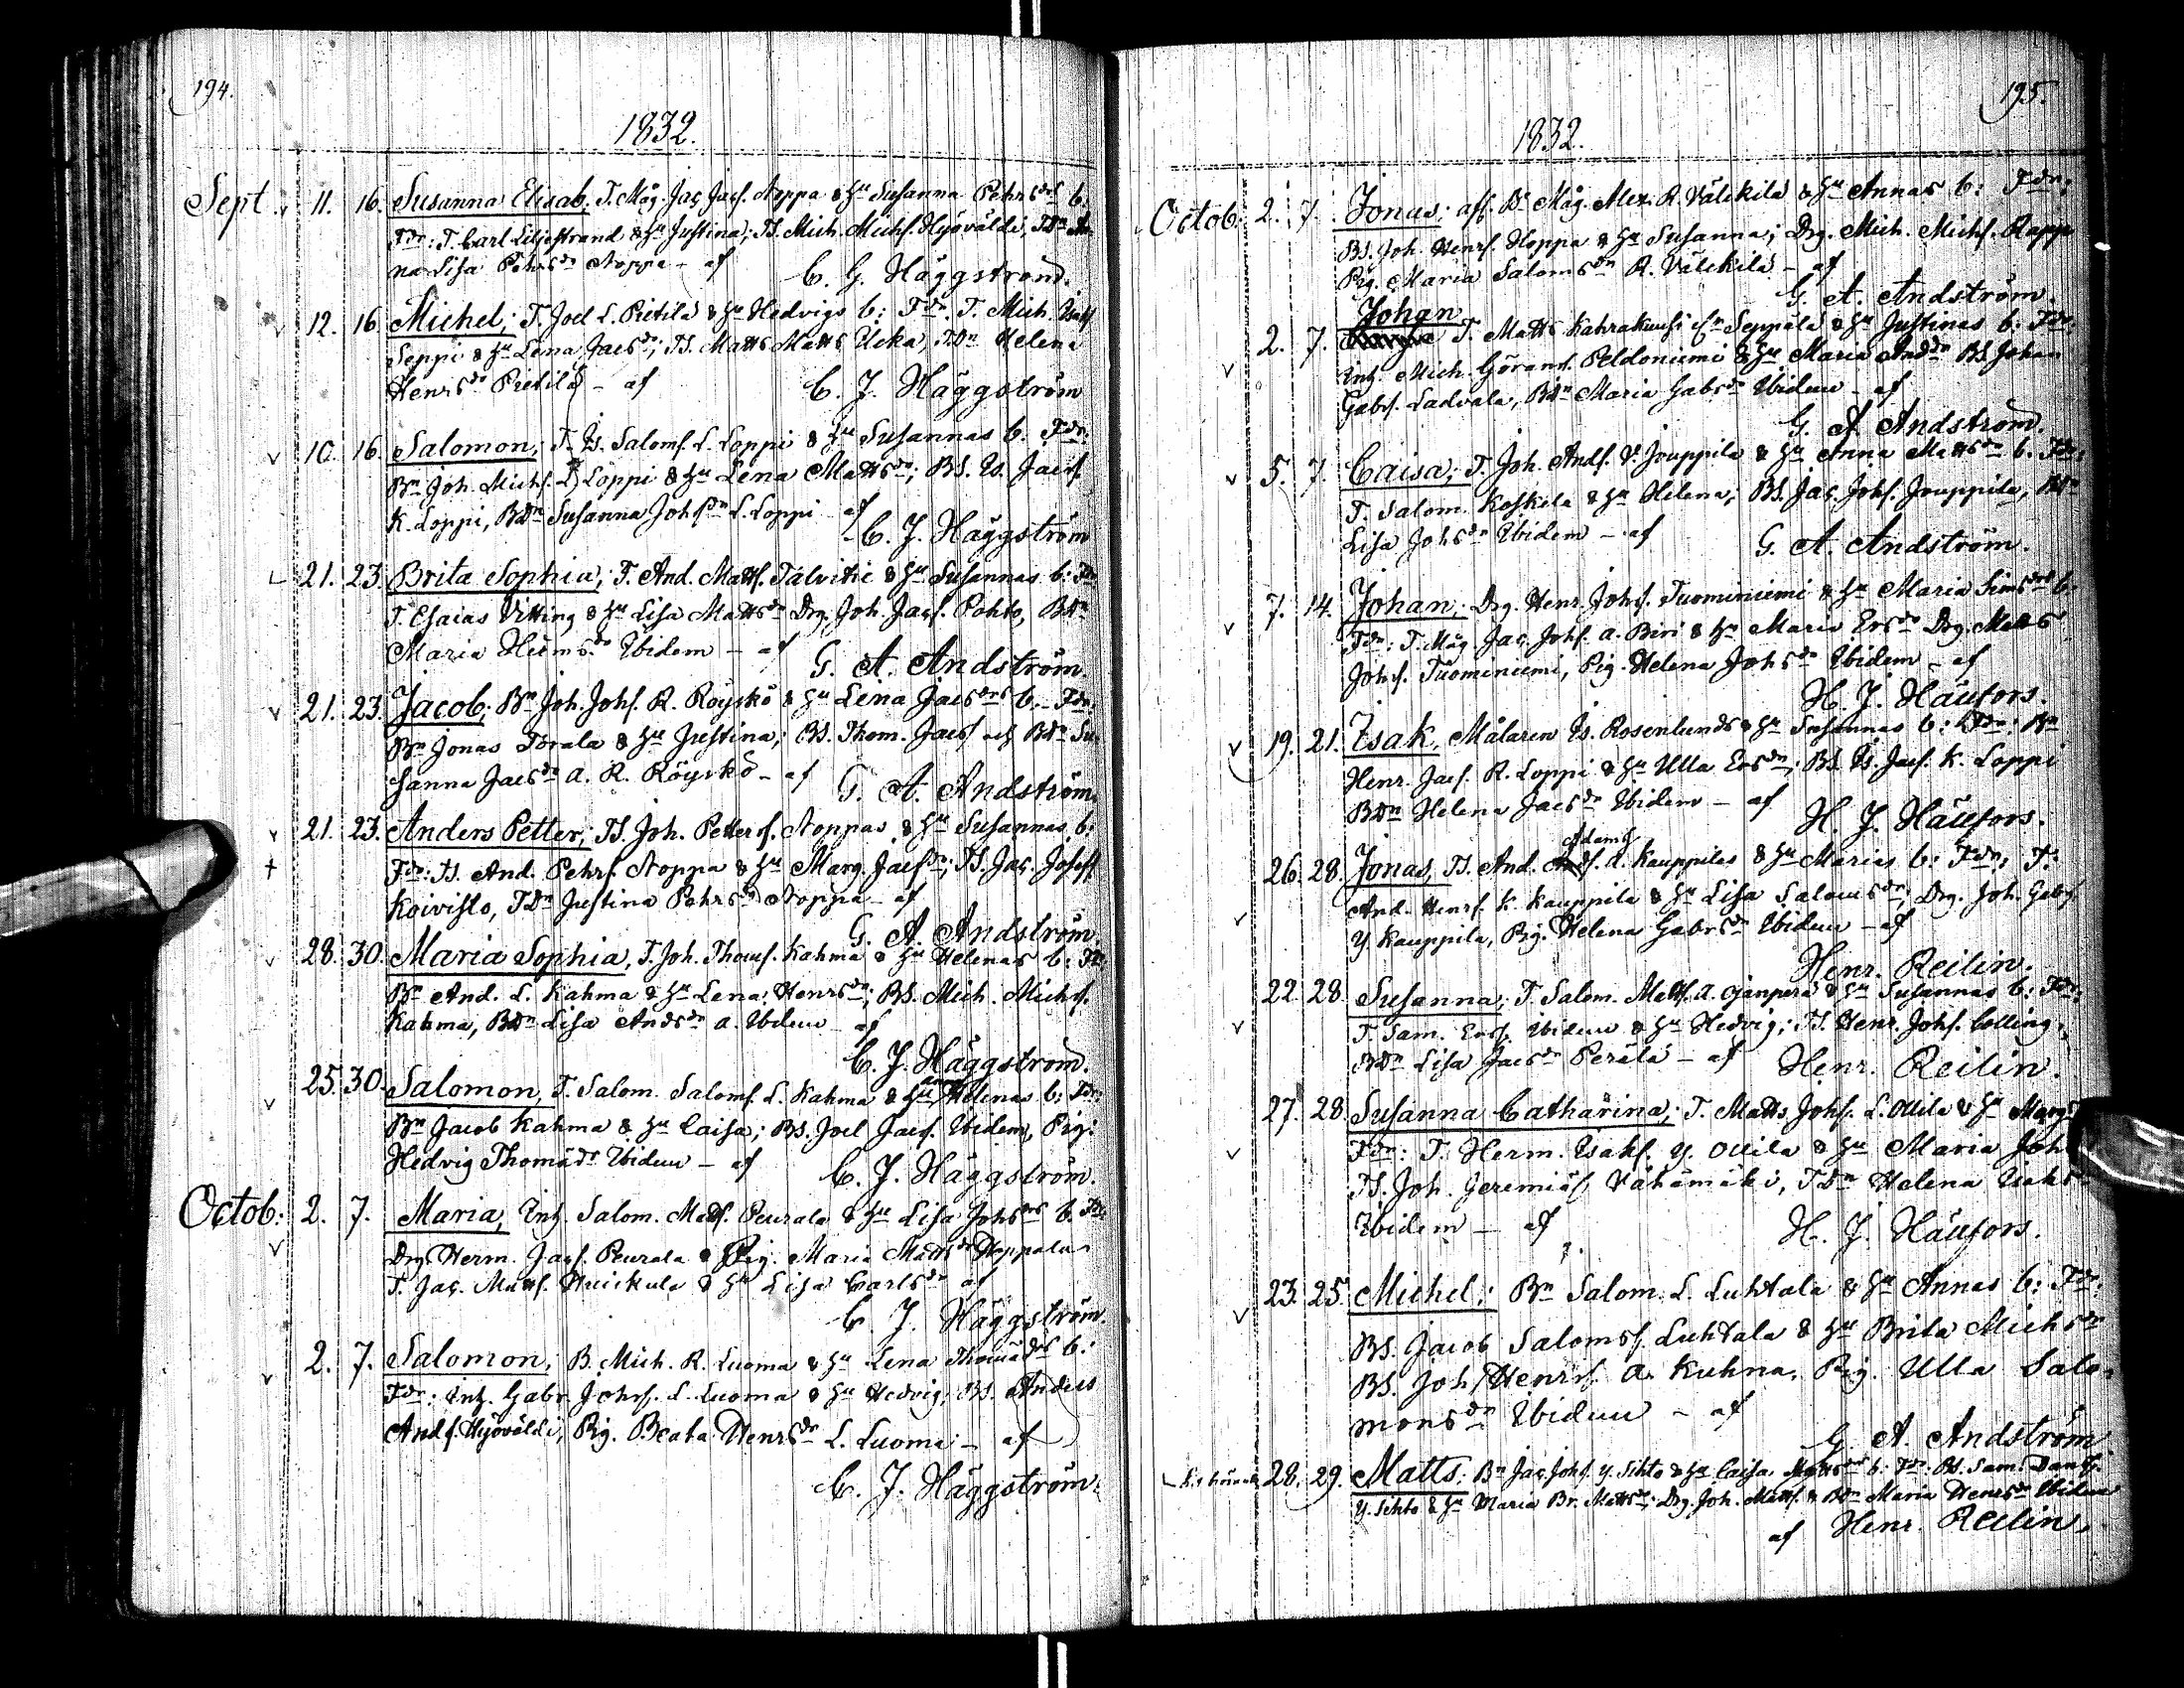 194.
1832.
Sept. 11. 16. Susanna Elisab; T. Måg. Jac. Jacs. Noppa & Hu Susanna Pehrsdrs b.
Fdr: T. Carl Liljestrand & Hu Justina; TS. Mich. Michs. Hyövälde, TDr An-
na Lisa Pehrsdr Noppa – af
C. G. Häggstrand.
12. 16. Michel; T. Joel L. Pietilä & Hu Hedvigs b: Fdr. T. Mich. Isaks
Seppi & Hu Lena Jacsdr; TS. Matts Matts Ucka, TDr Helena
Henrsdr Pietilä – af
C. J. Häggström
10. 16. Salomon; T. Is. Saloms. L. Loppi & Hu Susannas b. Fdr:
Bn Joh. Michs. L. Loppi & Hu Lena Mattsdr; BS. Is. Jacs.
K. Loppi, BDr Susanna Johsdr L. Loppi af
C. J. Häggström
21. 23. Brita Sophia; T. And. Matts. Talvitie & Hu Susannas b: Fdr
T. Esaias Vitting & Hu Lisa Mattsdr Drg. Joh. Jacs. Pohto, BDr
Maria Ibidem – af
G. A. Andström.
21. 23. Jacob; Bn Joh. Johs. R. Röyskö & Hu Lena Jacsdrs b. Fdr:
Bn Jonas Torala & Hu Justina; BS. Thom. Jacs. och BDr Su-
sanna Jacsdr a. R. Röyskö – af
G. A. Andström.
21. 23. Anders Petter; TS. Joh. Petters. Noppas & Hu Susannas b:
Fdr: TS. And. Pehrs. Noppa & Hu Marg. Jacsdr; TS. Jac. Josefs
Koivisto, TDr Justina Pehrsdr Noppa – af
G. A. Andström.
28. 30. Maria Sophia, T. Joh. Thoms. Kahma & Hu Helenas b: Fdr:
Bn And. L. Kahma & Hu Lena Henrsdr; BS. Mich. Michs.
Kahma, BDr Lisa Andsdr a. Ibidem af
C. J. Häggström.
25. 30. Salomon, T. Salom. Saloms. L. Kahma & Hu Helenas b: Fdr:
Bn Jacob Kahma & Hu Caisa; BS. Joel Jacs. Ibidem, Pig:
Hedvig Thomædr Ibidem – af
C. J. Häggström.
Octob: 2. 7. Maria, Inh. Salom. Matts. Peurala & Hu Lisa Johsdrs b. Fdr:
Drg. Herm. Jacs. Peurala & Pig. Maria Mattsdr Hoppala
T. Jac. Matts. Huickula & Hu Lisa Carlsdr af
C. J. Häggström.
2. 7. Salomon; B. Mich. R. Luoma & Hu Lena Thomædrs b:
Fdr: Inh. Gabr. Johs. L. Luoma & Hu Hedvig, BS. Anders
Ands. Hyövälde, Pig. Beata Henrsdr L. Luoma – af
C. J. Häggström.
195.
1832.
Octob: 2. 7. Jonas; Bn Måg. Alex. R. Välikilä & Hu Annas b: Fdr:
BS. Joh. Henrs. Hoppa & Hu Susanna; Drg. Mich. Michs. Rapp
Pig. Maria Salomsdr R. Välikilä – af
G. A. Andström.
Johan
2. 7. T. Matts Kahrakuusi Seppälä & Hu Justinas b. Fdr:
Inh. Mich. Görans. Peldoniemi & Hu Maria Andsdr BS. Johan
Gabrs. Ladvala, BDr Maria Gabrsdr Ibidem – af
G. A. Andström.
5. 7. Caisa; T. Joh. Ands. Y. Jouppila & Hu Anna Mattsdrs b. Fdr:
T. Salom. Koskela & Hu Helena; BS. Jac. Johs. Jouppila, BDr
Lisa Johsdr Ibidem – af
G. A. Andström.
7. 14. Johan; Drg. Henr. Johs. Tuominiemi & Hu Maria Simsdrs b.
Fdr: T. Måg Jac. Johs. a. Biri & Hu Maria Ersdr Drg. Matts
Johs. Tuominiemi, Pig. Helena Johsdr Ibidem – af
H. J. Häufors.
19. 21. Isak, Målaren Is. Rosenlunds & Hu Susannas b: Fdr: Bn
Henr. Jacs. R. Loppi & Hu Ulla Ersdr; BS. Is. Jacs. K. Loppi
BDr Helena Jacsdr Ibidem – af
H. J. Häufors.
Adams
26. 28. Jonas, TS. And. a. Kauppilas & Hu Marias b: Fdr: T.
And. Henrs. K. Kauppila & Hu Lisa Salomsdr; Drg. Joh. Gabrs
Y. Kauppila, Pig. Helena Gabrsdr Ibidem – af
Henr. Reilin.
22. 28. Susanna; T. Salom. Matts. a. Ojanperä & Hu Susannas b: Fdr:
T. Sam. Ers. Ibidem & Hu Hedvig; TS. Henr. Johs. Colling,
BDr Lisa Jacsdr Perälä – af
Henr. Reilin.
27. 28. Susanna Catharina; T. Matts Johs. L. Ollila & Hu Marg.
Fdr: T. Herm. Isaks. Y. Ollila & Hu Maria Joh
TS. Joh. Jeremiæs. Vähämäki, TDr Helena Isaks
Ibidem – af
H. J. Häufors.
23. 25. Michel; Bn Salom. L. Luhtala & Hu Annas b: Fdr:
BS. Jacob Salomss. Luhtala & Hu Brita Michsdr
BS. Joh. Henrs. a. Kuhna, Pig. Ulla Salo-
monsdr Ibidem – af
G. A. Andström
28. 29. Matts; Bn Jac. Johs. Y. Sihto & Hu Caisa Mattsdrs b: Fdr: BS. Sam. Dans.
Y. Sihto & Hu Maria Br. Mattsdr; Drg. Joh. Matts. & BDr Maria Henrsdr Ibidem
af Henr. Reilin.